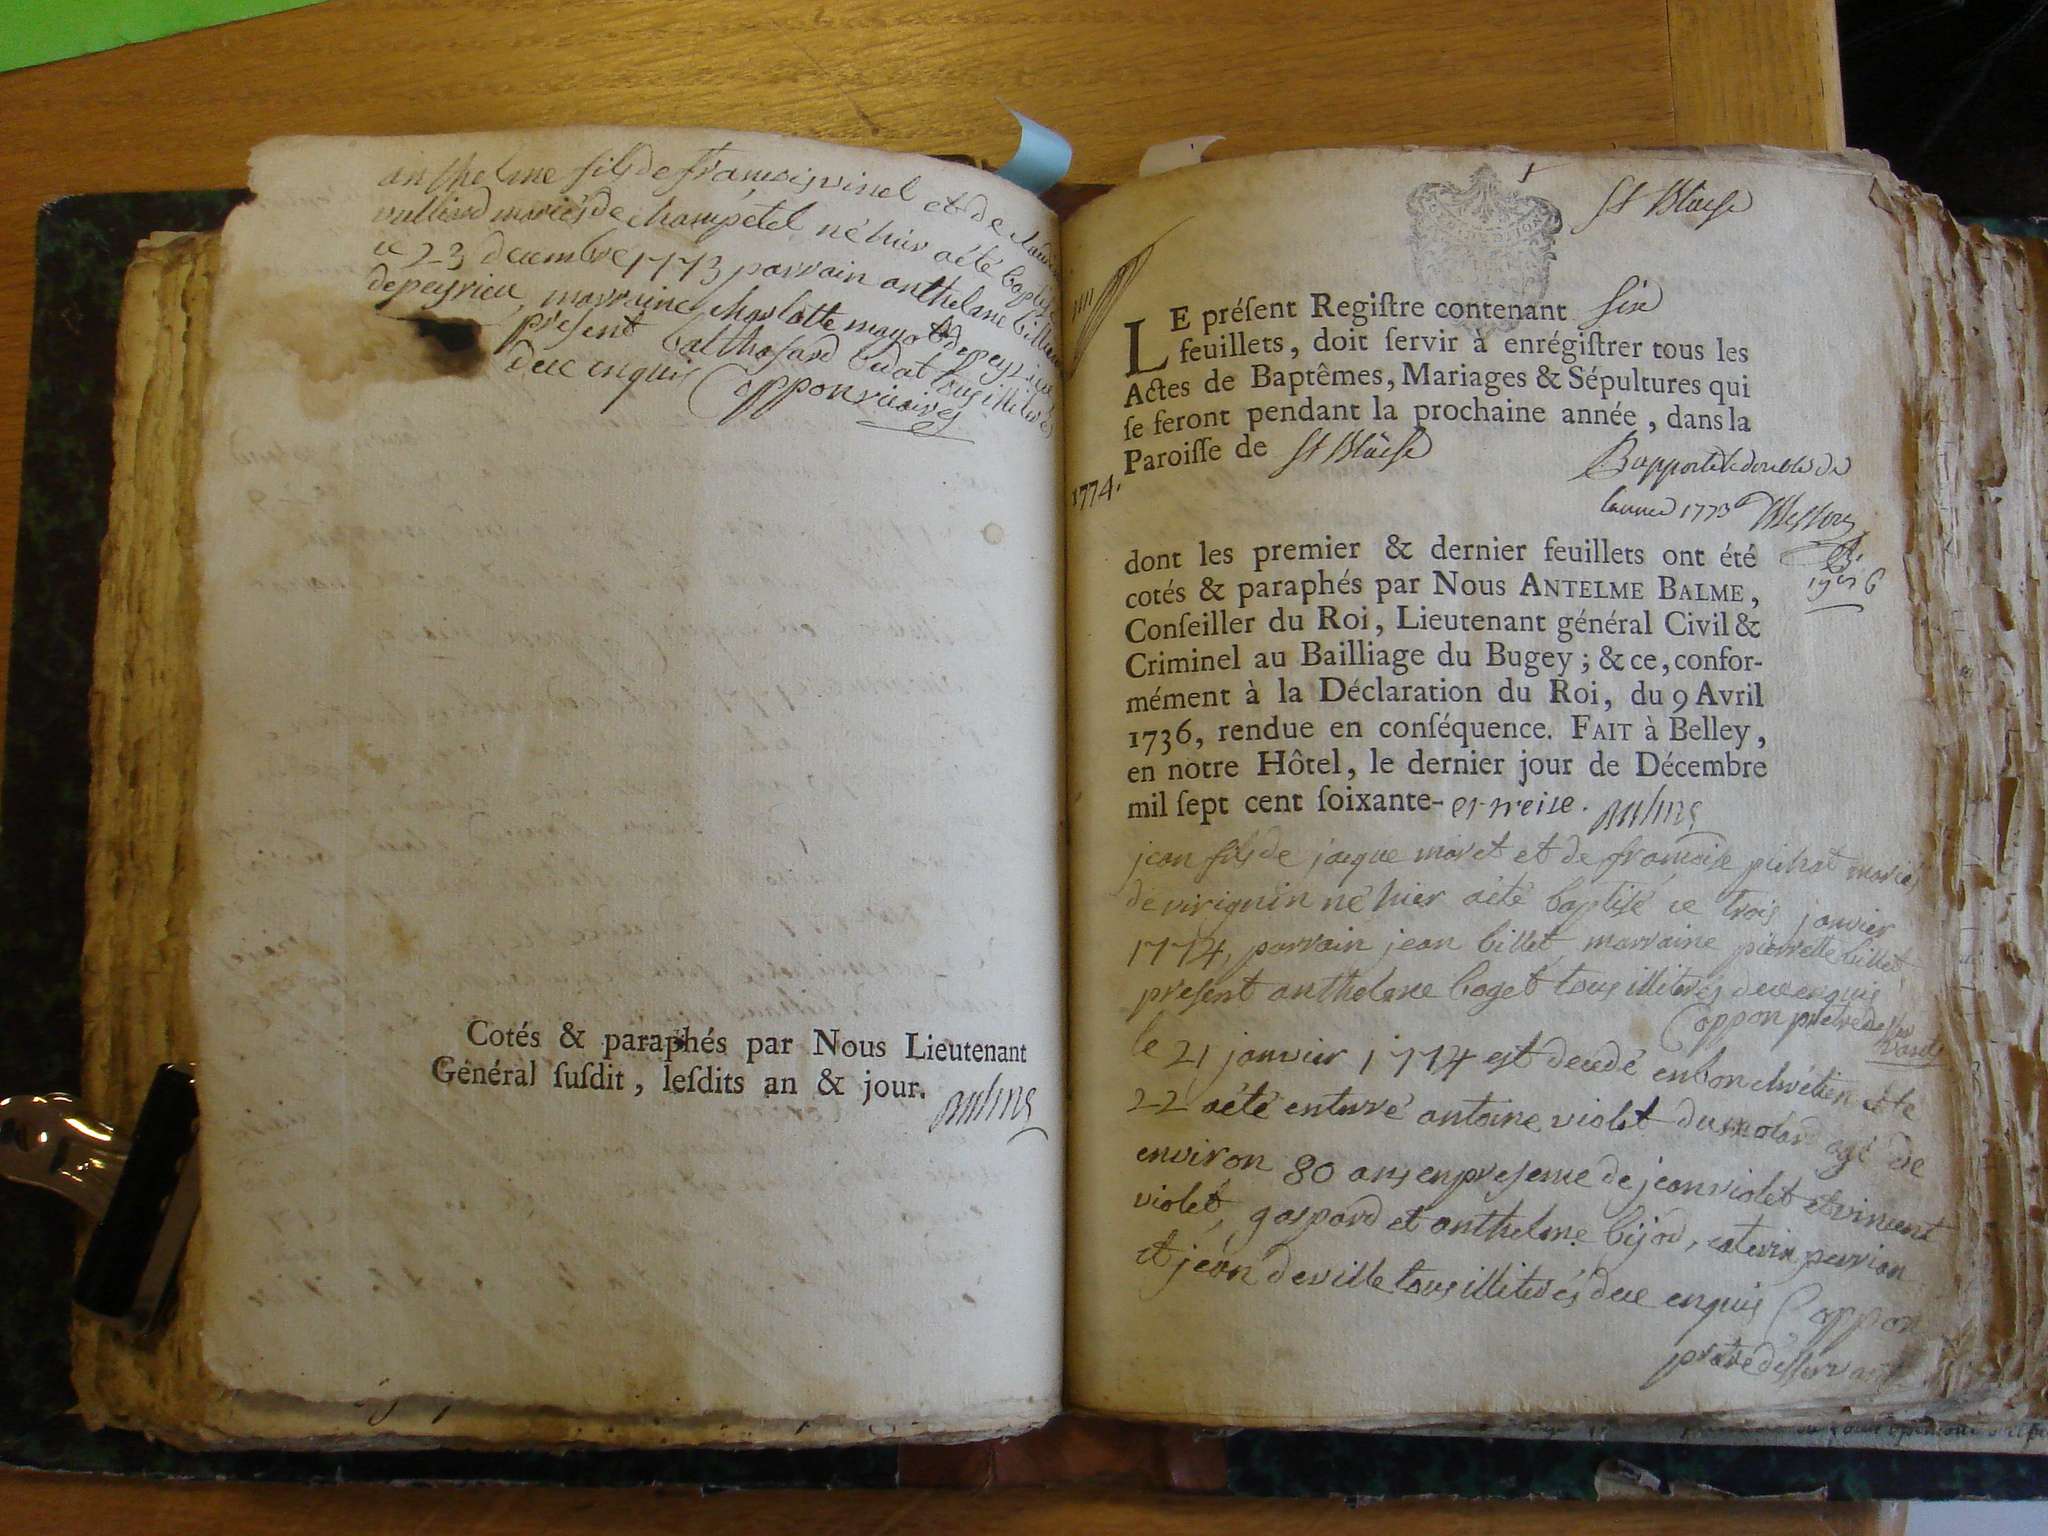 anthelme fils de françois vinel et de claudine
vulliard mariés de champêtel né hier a été baptisé
ce 23 decembre 1773 parrain anthelme billiem
de peyrieu, marraine charlotte mayot de peyrieu
present balthasard budat tous illiterés
deue enquis Coppon vicaire
Cotés & paraphés par Nous Lieutenant
Général ſuſdit, leſdits an & jour.
St Blaise
LE préſent Regiſtre contenant six
feuillets, doit ſervir à enrégiſtrer tous les
Actes de Baptêmes, Mariages & Sépultures qui
ſe feront pendant la prochaine année, dans la
Paroiſſe de St Blaise
1774.
Rapporté le double de
lannee 1773
dont les premier & dernier feuillets ont été
cotés & paraphés par Nous ANTELME BALME,
Conſeiller du Roi, Lieutenant général Civil &
Criminel au Bailliage du Bugey ; & ce, confor-
mément à la Déclaration du Roi, du 9 Avril
1736, rendue en conſéquence. FAIT à Belley,
en notre Hôtel, le dernier jour de Décembre
mil ſept cent ſoixante- et treise.
jean fils de jacque moret et de françoise pichat mariés
de virignin né hier a été baptisé ce trois janvier
1774, parrain jean billet, marraine pierrette billet
present anthelme boget tous illiterés deue enquis
Coppon pretre desser
vant
le 21 janvier 1774 est decedé en bon chrétien et le
22 a été enterré antoine violet du molard agé de
environ 80 ans en presence de jean violet et vincent
violet, gaspard et anthelme bijod, caterin perrion
et jean deville tous illiterés deue enquis Coppon
prêtre desservant